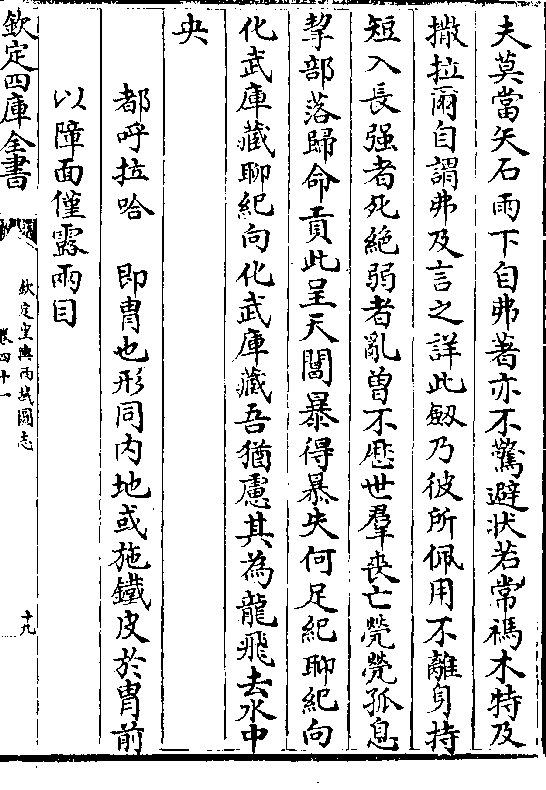 夫莫當矢石雨下自弗著亦不驚避狀若常禡木特及
撒拉爾自謂弗及言之詳此劔乃彼所佩用不離身持
短入長强者死絶弱者亂曾不歴世羣喪亡煢煢孤息
挈部落歸命貢此呈天閶暴得暴失何足紀聊紀向
化武庫藏聊紀向化武庫藏吾猶慮其為龍飛去水中
央
都呼拉哈　即胄也形同内地或施鐵皮於胄前
以障面僅露兩目
欽定四庫全書
欽定皇輿西域圖志
卷四十一
十九